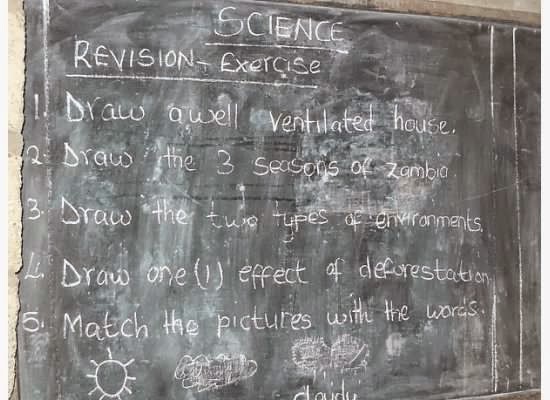 SCIENCE
REVISION - Exercise
1. Draw a well ventilated house.
2. Draw the 3 seasons of Zambia.
3. Draw the two types of environments.
4. Draw one (1) effect of deforestation
5. Match the pictures with the words.
cloudy